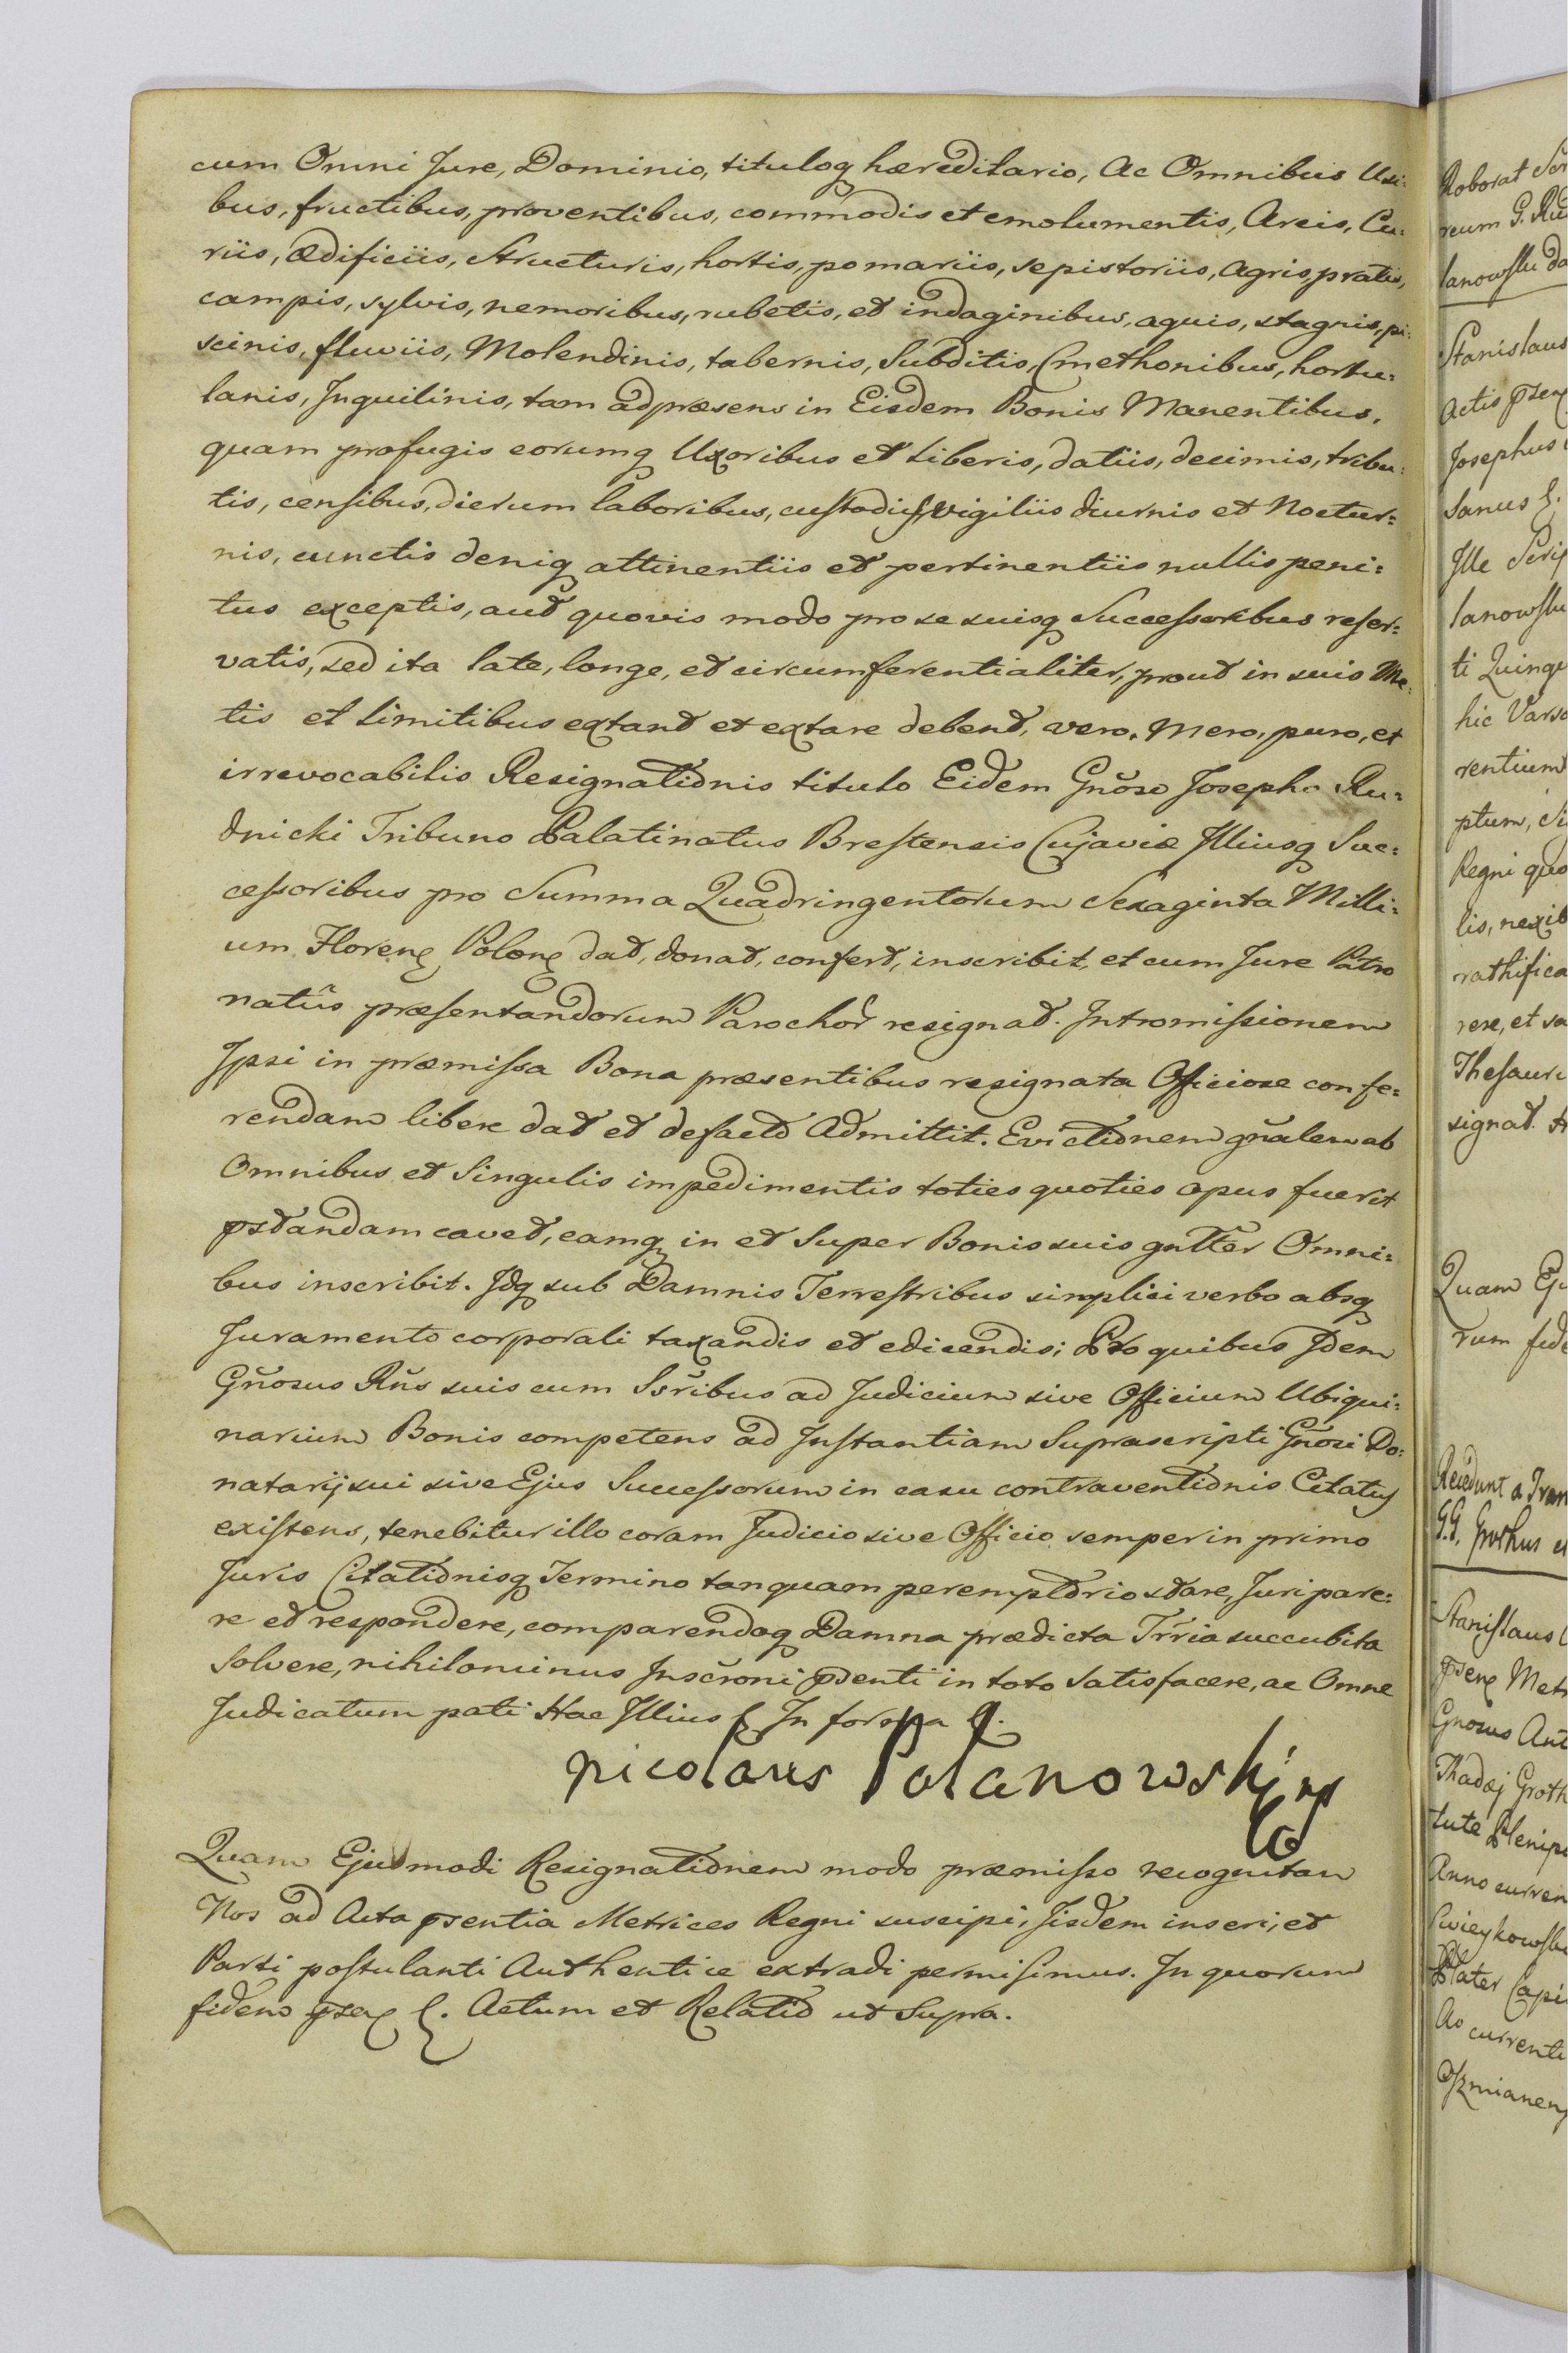 cum Omni Jure, Dominio, tituloq hæreditario, Ac Omnibus Usi:
bus, fructibus, proventibus, commodis et emolumentis, Areis, Cu:
riis, Ædificiis, Structuris, hortis, pomariis, sepistoriis, Agris, pratis,
campis, sylvis, nemoribus, rubetis, et indaginibus, aquis, stagnis, pi:
scinis, fluviis, Molendinis, tabernis, Subditis, Cmethonibus, hortu:
lanis, Inquilinis, tam ad præsens in Eisdem Bonis Manentibus,
quam profugis eorumq Uxoribus et Liberis, datiis, decimis, tribu:
tis, censibus, dierum laboribus, custodiis, vigiliis diurnis et Noctur:
nis, cunctis deniq attinentiis et pertinentiis nullis peni:
tus exceptis, aut quovis modo pro se suisq Successoribus reser:
vatis, sed ita late, longe, et circumferentialiter, prout in suis Me:
tis et limitibus extant et extare debent, vero, Mero, puro, et
irrevocabilis Resignationis titulo Eidem Gnoso Josepho Ru:
dnicki Tribuno Palatinatus Brestensis Cujaviæ Illiusq Suc:
cessoribus pro Summa Quadringentorum Sexaginta Milli:
um Floren Polon dat, donat, confert, inscribit, et cum Jure Patro
natus præsentandorum Parochor resignat. Intromissionem
Ipsi in præmissa Bona præsentibus resignata Officiose confe:
rendam libere dat et defacto Admittit. Evictionem gnalem ab
Omnibus et Singulis impedimentis toties quoties opus fuerit
pstandam cavet, eamq in et Super Bonis suis gnlter Omni:
bus inscribit. Idq sub Damnis Terrestribus simplici verbo absq
Juramento corporali taxandis et edicendis; Pro quibus Idem
Gnosus Rns suis cum Ssribus ad Judicium sive Officium Ubiqui:
narium Bonis competens ad Instantiam Suprascripti Gnosi Do:
natarij sui sive Ejus Successorum in casu contraventionis Citatus
existens, tenebitur illo coram Judicio sive Officio semper in primo
Juris Citationisq Termino tanquam peremptorio stare, Juri pare:
re et respondere, comparendoq Damna prædicta Trria succubita
solvere, nihilominus Inscroni psenti in toto satisfacere, ac Omne
Judicatum pati Hac Illius In forma
Nicolaus Polanowski mp
Quam Ejusmodi Resignationem modo præmisso recognitam
Nos ad Acta psentia Metrices Regni suscipi, Iisdem inseri, et
Parti postulanti Authentice extradi permisimus. In quorum
fidem psen. Actum et Relatio ut Supra.
Roborat
reum G.
lanowski
Stanislaus
Actis psen
Josephus
sanus
Ille
lanowski
ti
hic
rentium
ptum,
Regni quo
lis,
rathifica
rere, et
Thesauri
signat.
Quam
rum fide
Recedunt a
G.G. Grothus
Stanislaus
psen
Gnosus
Thadæj
tute
Anno curren
Plater
Ao currenti